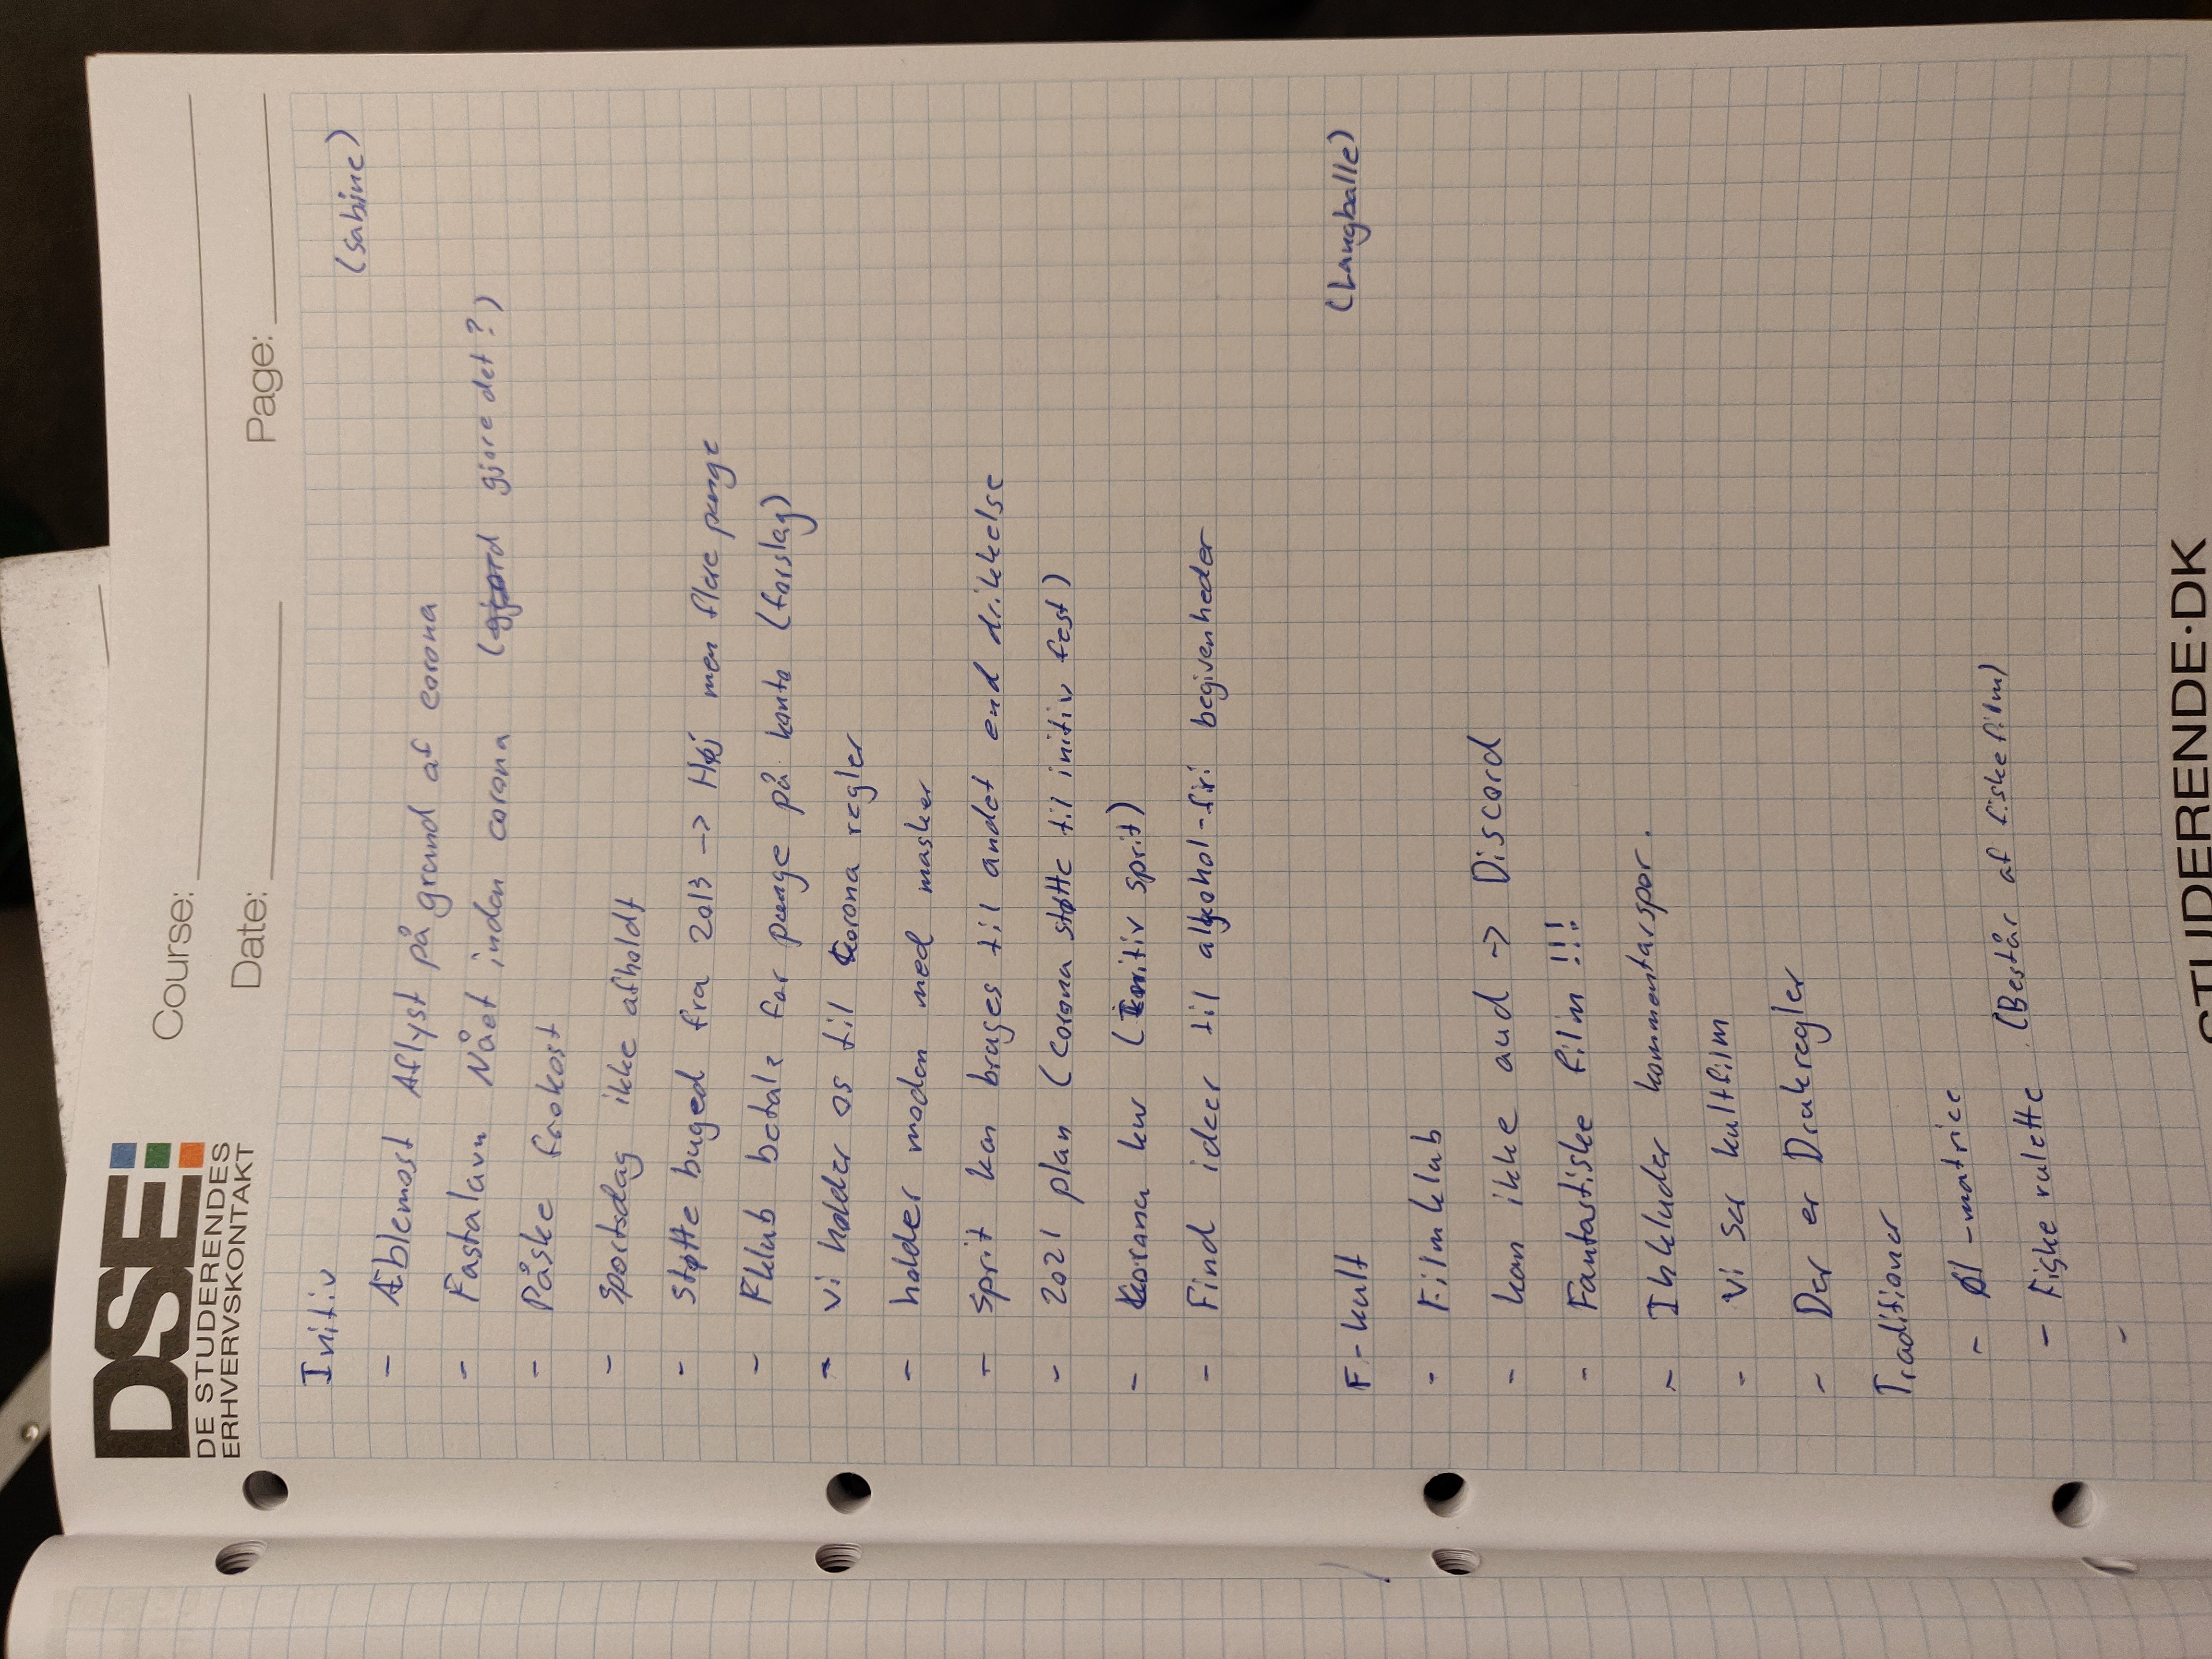 DSE
DE STUDERENDES
ERHVERVSKONTAKT
Course:
Date: Page:
Initiv (Sabine)
- Æblemost Aflyst på grund af corona
- Fastalavn Nået inden corona (gjord gjøre det?)
- Påske frokost
- Sportsdag ikke afholdt
- støtte buged fra 2013 -> Høj men flere penge
- Fklub betale for penge på konto (forslag)
- vi holder os til Corona regler
- holder maden med masker
- sprit kan bruges til andet end drikkelse
- 2021 plan (corona støtte til initiv fest)
- Corona kur (Initiv sprit)
- Find ideer til alkohol-fri begivenheder
F-kult (Langballe)
- Filmklub
- kan ikke aud -> Discord
- Fantastiske film !!!
- Inkluder kommentarspor.
- Vi ser kultfilm
- Der er Drukregler
Traditioner
- Øl-matrice
- Fiske rulette (Består af fiskefilm)
-
STUDERENDE.DK